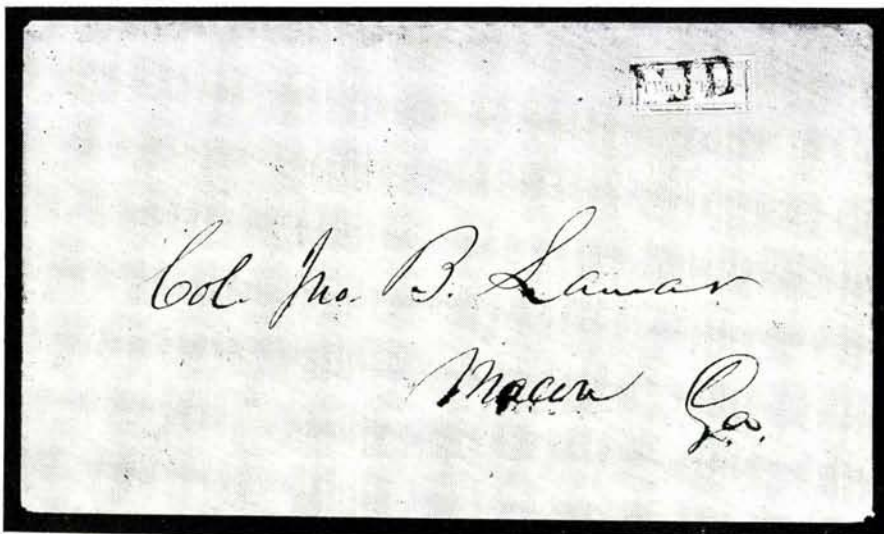 Col. Jno. B. Lamar
Macon Ga.